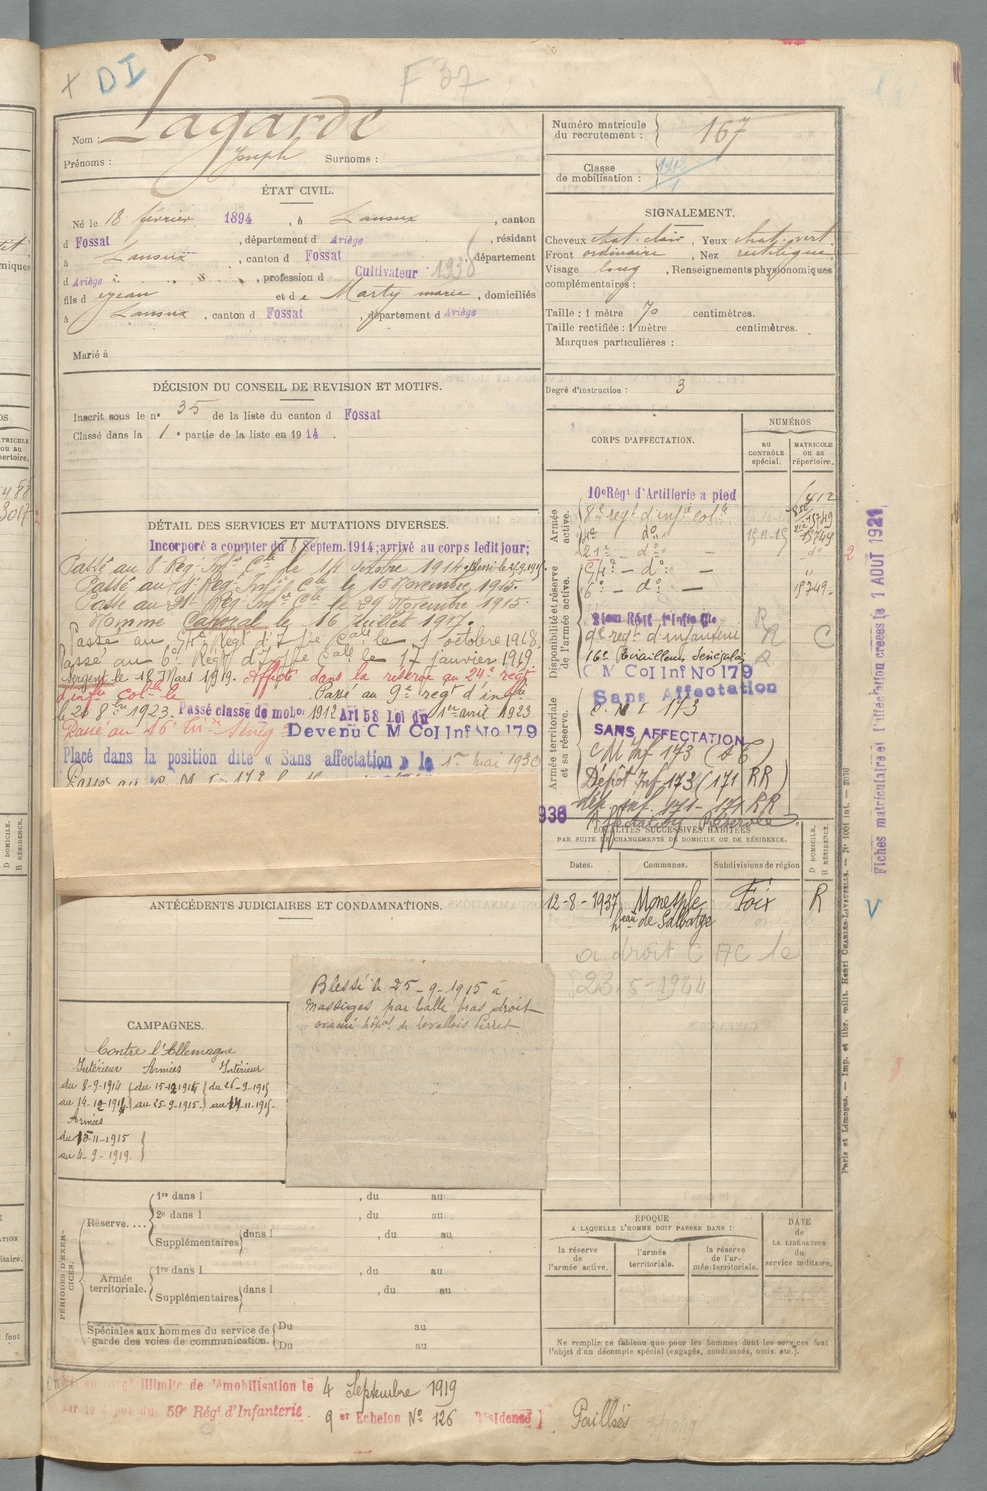 + DI
F 37
Nom : Lagarde
Prénoms : Joseph Surnoms :
ÉTAT CIVIL.
Né le 18 février 1894, à Lanoux, canton
d Fossat, département d Ariège, résidant
à Lanoux, canton d Fossat, département
d Ariège, profession d Cultivateur 1930
fils d e Jean et de Marty marie, domiciliés
à Lanoux, canton d Fossat, département d Ariège
Marié à
DÉCISION DU CONSEIL DE REVISION ET MOTIFS.
Inscrit sous le n° 35 de la liste du canton d Fossat
Classé dans la 1e partie de la liste en 1914.
DÉTAIL DES SERVICES ET MUTATIONS DIVERSES.
Incorporé a compter du 8 Septem. 1914; arrivé au corps ledit jour;
Passé au 8 Rég. Infie Cle le 14 Octobre 1914.
Passé au 4e Rég. Infie Cle le 15 Novembre 1915.
Passé au 21e Rég Infie Cle le 29 Novembre 1915.
Nommé Caporal le 16 Juillet 1917.
Passé au Régt d'Infie Cale le 1 octobre 1918
Passé au 6e Régt d'Infie Cale le 17 janvier 1919.
Sergent le 18 Mars 1919. Affecté dans la réserve au 24e régt
d'infie colle le Passé au 9e regt d'infie
le 8 1923. Passé classe de mobon 1912 Art 58 Loi du 1er avril 1923
Passé au 16 Tir. Sénég. Devenu C M Col Inf No 179
Placé dans la position dite « Sans affectation » le 1er mai 1930
ANTÉCÉDENTS JUDICIAIRES ET CONDAMNATIONS.
Blessé le 25-9-1915 à
Massiges par balle bras droit
évacué hôpal de Levallois Perret
CAMPAGNES.
Contre l'Allemagne
Intérieur Armées Intérieur
du 8-9-1914 du 15-12-1914 du 26-9-1915
au 14-12-1914 au 25-9-1915. au 14-11-1915.
Armées
du 15-11-1915
au 4-9-1919.
PÉRIODES D'EXERCICES.
Réserve....
1re dans l , du au
2e dans l , du au
Supplémentaires dans l , du au
Armée territoriale.
1re dans l , du au
Supplémentaires dans l , du au
Spéciales aux hommes du service de garde des voies de communication.
Du au
Du au
illimité de démobilisation le 4 Septembre 1919
par le dépôt du 59e Régt d'Infanterie. 9 er Echelon No 126 Résidence ] Pailhès
Numéro matricule du recrutement : 167
Classe de mobilisation : 1912
SIGNALEMENT.
Cheveux chat. clair, Yeux chat. vert
Front ordinaire, Nez rectiligne
Visage long, Renseignements physionomiques
complémentaires :
Taille : 1 mètre 70 centimètres.
Taille rectifiée : 1 mètre centimètres.
Marques particulières :
Degré d'instruction : 3
CORPS D'AFFECTATION.
NUMÉROS
AU CONTRÔLE SPÉCIAL.
MATRICULE OU AU RÉPERTOIRE.
Armée active.
10e Régt d'Artillerie a pied
8e regt d'infie colle
4e — do —
21e — do —
Disponibilité et réserve de l'armée active.
6e — do —
15749
9e regt d'infanterie
16e Tirailleurs Sénégalais
C M Col Inf No 179
Sans Affectation
Armée territoriale et sa réserve.
C. M I 173
SANS AFFECTATION
C M Inf 173
Dépôt Inf 173 (171 RR)
Dép. inf. 171 - 171 RR
Affectation Réservée
LOCALITÉS SUCCESSIVES HABITÉES
PAR SUITE DE CHANGEMENTS DE DOMICILE OU DE RÉSIDENCE.
Dates. Communes. Subdivisions de région
D DOMICILE. R RÉSIDENCE.
12-8-1937 Monesple Foix R
heau de Salbatge
a droit C AC le
23.5-1944
ÉPOQUE
A LAQUELLE L'HOMME DOIT PASSER DANS :
la réserve de l'armée active.
l'armée territoriale.
la réserve de l'armée territoriale.
DATE de LA LIBÉRATION du service militaire.
Ne remplir ce tableau que pour les hommes dont les services font
l'objet d'un décompte spécial (engagés, condamnés, omis, etc.).
Fiches matriculaire et d'affectation créées le 1 AOUT 1921
Paris et Limoges. — Imp. et libr. milit. Henri CHARLES-LAVAUZELLE.